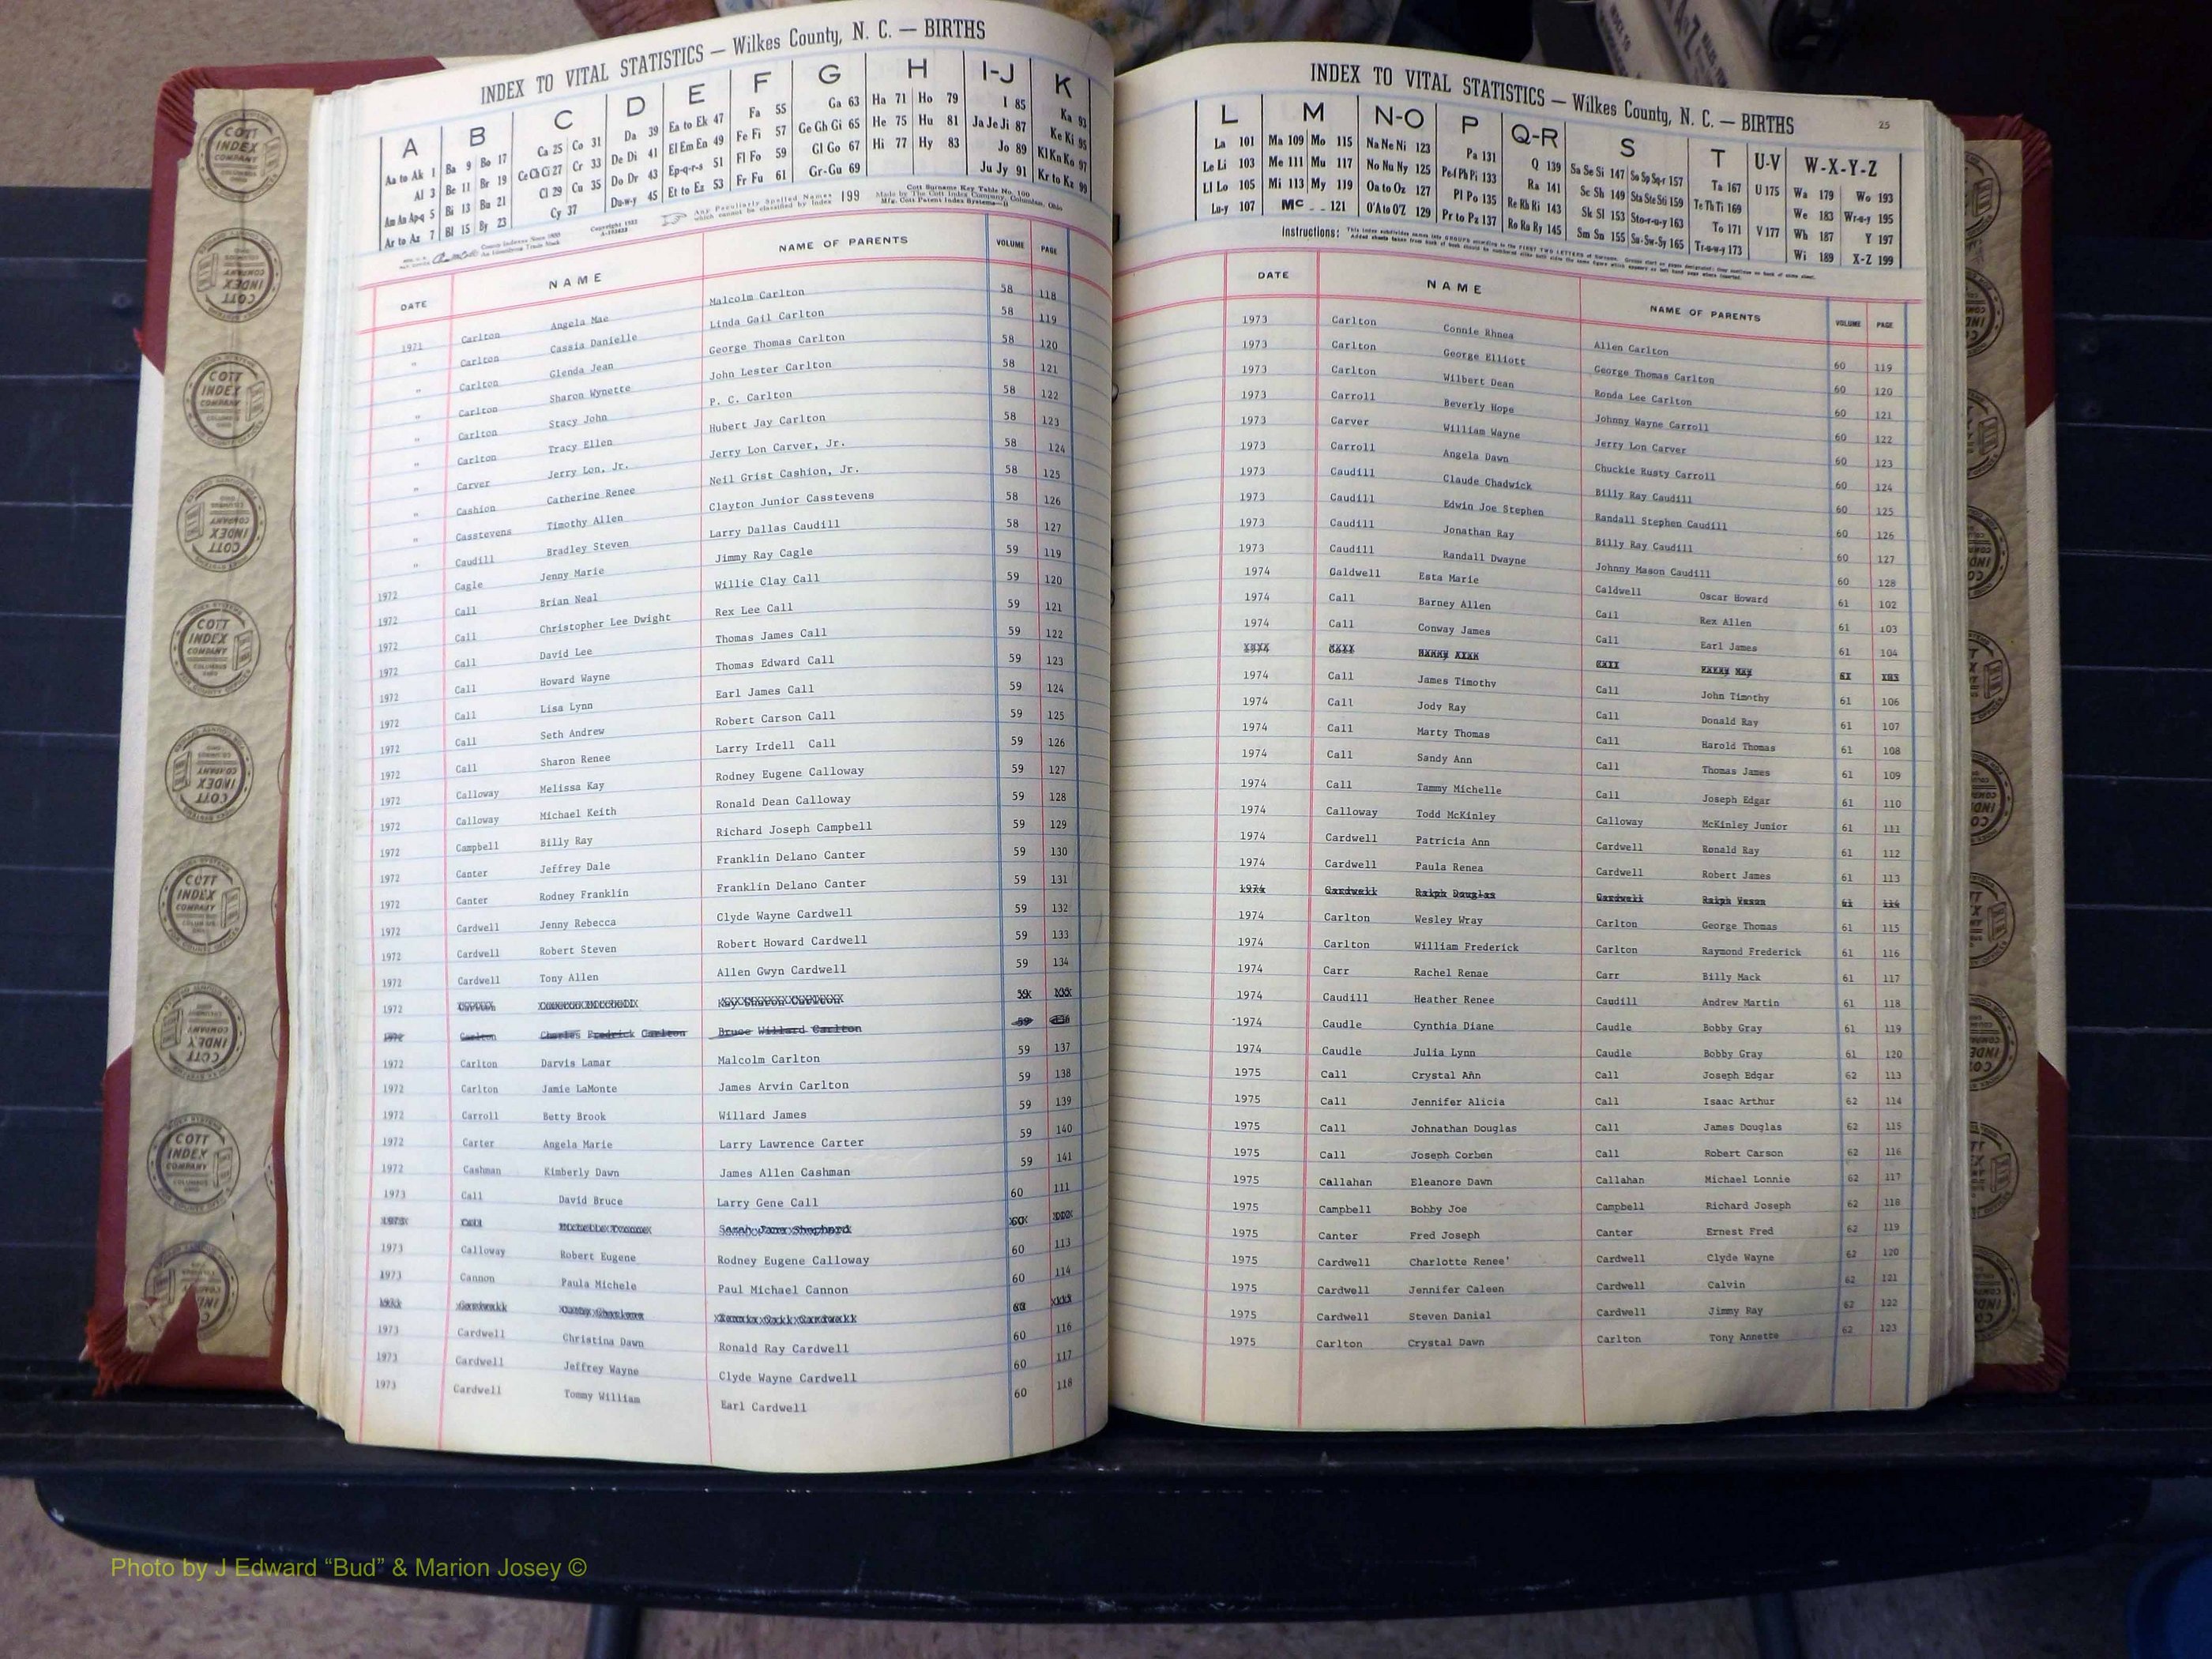 INDEX TO VITAL STATISTICS — Wilkes County, N. C. — BIRTHS
A B C D E F G H I-J K
Aa to Ak 1 Ba 9 Bo 17 Ca 25 Co 31 Da 39 Ea to Ek 47 Fa 55 Ga 63 Ha 71 Ho 79 I 85 Ka 93
Al 3 Be 11 Br 19 Ce Ch Ci 27 Cr 33 De Di 41 El Em En 49 Fe Fi 57 Ge Gh Gi 65 He 75 Hu 81 Ja Je Ji 87 Ke Ki 95
Am An Ap-q 5 Bi 13 Bu 21 Cl 29 Cu 35 Do Dr 43 Ep-q-r-s 51 Fl Fo 59 Gl Go 67 Hi 77 Hy 83 Jo 89 Kl Kn Ko 97
Ar to Az 7 Bl 15 By 23 Cy 37 Du-w-y 45 Et to Ez 53 Fr Fu 61 Gr-Gu 69 Ju Jy 91 Kr to Kz 99
Any Peculiarly Spelled Names which cannot be classified by Index 199
Cott Surname Key Table No. 100
Made by The Cott Index Company, Columbus, Ohio
DATE NAME NAME OF PARENTS VOLUME PAGE
1971 Carlton Angela Mae Malcolm Carlton 58 118
" Carlton Cassia Danielle Linda Gail Carlton 58 119
" Carlton Glenda Jean George Thomas Carlton 58 120
" Carlton Sharon Wynette John Lester Carlton 58 121
" Carlton Stacy John P. C. Carlton 58 122
" Carlton Tracy Ellen Hubert Jay Carlton 58 123
" Carver Jerry Lon, Jr. Jerry Lon Carver, Jr. 58 124
" Cashion Catherine Renee Neil Grist Cashion, Jr. 58 125
" Casstevens Timothy Allen Clayton Junior Casstevens 58 126
" Caudill Bradley Steven Larry Dallas Caudill 58 127
1972 Cagle Jenny Marie Jimmy Ray Cagle 59 119
1972 Call Brian Neal Willie Clay Call 59 120
1972 Call Christopher Lee Dwight Rex Lee Call 59 121
1972 Call David Lee Thomas James Call 59 122
1972 Call Howard Wayne Thomas Edward Call 59 123
1972 Call Lisa Lynn Earl James Call 59 124
1972 Call Seth Andrew Robert Carson Call 59 125
1972 Call Sharon Renee Larry Irdell Call 59 126
1972 Calloway Melissa Kay Rodney Eugene Calloway 59 127
1972 Calloway Michael Keith Ronald Dean Calloway 59 128
1972 Campbell Billy Ray Richard Joseph Campbell 59 129
1972 Canter Jeffrey Dale Franklin Delano Canter 59 130
1972 Canter Rodney Franklin Franklin Delano Canter 59 131
1972 Cardwell Jenny Rebecca Clyde Wayne Cardwell 59 132
1972 Cardwell Robert Steven Robert Howard Cardwell 59 133
1972 Cardwell Tony Allen Allen Gwyn Cardwell 59 134
1972
1972 Carlton Charles Fredrick Carlton Bruce Willard Carlton 59 136
1972 Carlton Darvis Lamar Malcolm Carlton 59 137
1972 Carlton Jamie LaMonte James Arvin Carlton 59 138
1972 Carroll Betty Brook Willard James 59 139
1972 Carter Angela Marie Larry Lawrence Carter 59 140
1972 Cashman Kimberly Dawn James Allen Cashman 59 141
1973 Call David Bruce Larry Gene Call 60 111
1973 Calloway Robert Eugene Rodney Eugene Calloway 60 113
1973 Cannon Paula Michele Paul Michael Cannon 60 114
1973 Cardwell Christina Dawn Ronald Ray Cardwell 60 116
1973 Cardwell Jeffrey Wayne Clyde Wayne Cardwell 60 117
1973 Cardwell Tommy William Earl Cardwell 60 118
INDEX TO VITAL STATISTICS — Wilkes County, N. C. — BIRTHS 25
L M N-O P Q-R S T U-V W-X-Y-Z
La 101 Ma 109 Mo 115 Na Ne Ni 123 Pa 131 Q 139 Sa Se Si 147 Sa Sp Sq-r 157 Ta 167 U 175 Wa 179 Wo 193
Le Li 103 Me 111 Mu 117 No Nu Ny 125 Pe-f Ph Pi 133 Ra 141 Sc Sh 149 Sta Ste Sti 159 Te Th Ti 169 We 183 Wr-u-y 195
Ll Lo 105 Mi 113 My 119 Oa to Oz 127 Pl Po 135 Re Rh Ri 143 Sk Sl 153 Sto-r-u-y 163 To 171 V 177 Wh 187 Y 197
Lu-y 107 Mc 121 O'A to O'Z 129 Pr to Pz 137 Ro Ru Ry 145 Sm Sn 155 Su-Sw-Sy 165 Tr-u-w-y 173 Wi 189 X-Z 199
Instructions:
DATE NAME NAME OF PARENTS VOLUME PAGE
1973 Carlton Connie Rhnea Allen Carlton 60 119
1973 Carlton George Elliott George Thomas Carlton 60 120
1973 Carlton Wilbert Dean Ronda Lee Carlton 60 121
1973 Carroll Beverly Hope Johnny Wayne Carroll 60 122
1973 Carver William Wayne Jerry Lon Carver 60 123
1973 Carroll Angela Dawn Chuckie Rusty Carroll 60 124
1973 Caudill Claude Chadwick Billy Ray Caudill 60 125
1973 Caudill Edwin Joe Stephen Randall Stephen Caudill 60 126
1973 Caudill Jonathan Ray Billy Ray Caudill 60 127
1973 Caudill Randall Dwayne Johnny Mason Caudill 60 128
1974 Caldwell Esta Marie Caldwell Oscar Howard 61 102
1974 Call Barney Allen Call Rex Allen 61 103
1974 Call Conway James Call Earl James 61 104
1974 Call James Timothy Call John Timothy 61 106
1974 Call Jody Ray Call Donald Ray 61 107
1974 Call Marty Thomas Call Harold Thomas 61 108
1974 Call Sandy Ann Call Thomas James 61 109
1974 Call Tammy Michelle Call Joseph Edgar 61 110
1974 Calloway Todd McKinley Calloway McKinley Junior 61 111
1974 Cardwell Patricia Ann Cardwell Ronald Ray 61 112
1974 Cardwell Paula Renea Cardwell Robert James 61 113
1974 Cardwell Ralph Douglas Cardwell Ralph 61 114
1974 Carlton Wesley Wray Carlton George Thomas 61 115
1974 Carlton William Frederick Carlton Raymond Frederick 61 116
1974 Carr Rachel Renae Carr Billy Mack 61 117
1974 Caudill Heather Renee Caudill Andrew Martin 61 118
1974 Caudle Cynthia Diane Caudle Bobby Gray 61 119
1974 Caudle Julia Lynn Caudle Bobby Gray 61 120
1975 Call Crystal Ann Call Joseph Edgar 62 113
1975 Call Jennifer Alicia Call Isaac Arthur 62 114
1975 Call Johnathan Douglas Call James Douglas 62 115
1975 Call Joseph Corben Call Robert Carson 62 116
1975 Callahan Eleanore Dawn Callahan Michael Lonnie 62 117
1975 Campbell Bobby Joe Campbell Richard Joseph 62 118
1975 Canter Fred Joseph Canter Ernest Fred 62 119
1975 Cardwell Charlotte Renee' Cardwell Clyde Wayne 62 120
1975 Cardwell Jennifer Caleen Cardwell Calvin 62 121
1975 Cardwell Steven Danial Cardwell Jimmy Ray 62 122
1975 Carlton Crystal Dawn Carlton Tony Annette 62 123
COTT INDEX COMPANY
Photo by J Edward “Bud” & Marion Josey ©